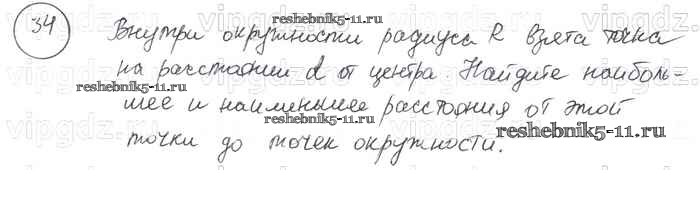 34
Внутри окружности радиуса R взята точка
на расстоянии d от центра. Найдите наиболь-
шее и наименьшее расстояния от этой
точки до точек окружности.
reshebnik5-11.ru
reshebnik5-11.ru
reshebnik5-11.ru
reshebnik5-11.ru
vipgdz.ru